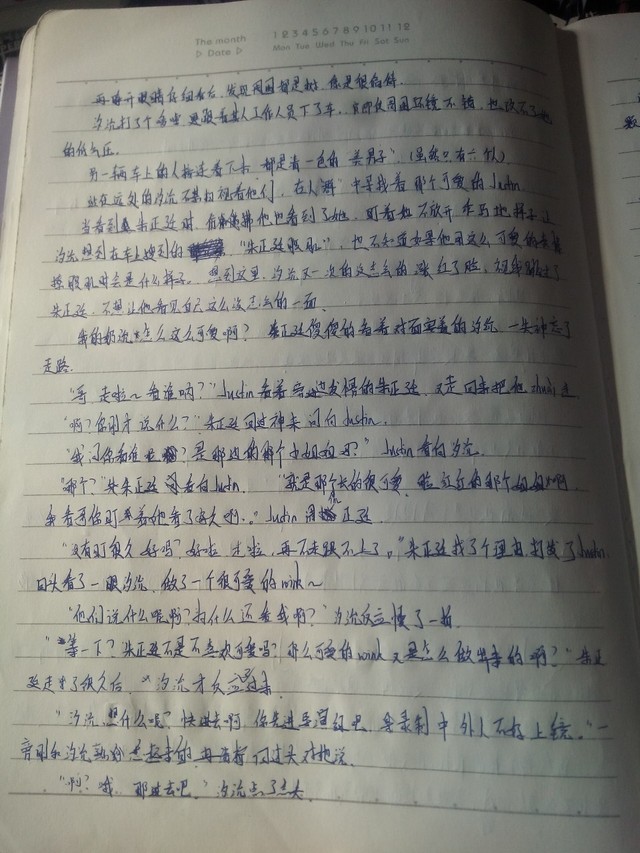 The month 1 2 3 4 5 6 7 8 9 10 11 12
▷ Date ▷ Mon Tue Wed Thu Fri Sat Sun
再睁开眼睛后，发现周围都是树，像是很偏僻
汐流打了个，跟着工作人员下了车，周围环境不错，也改不了她
的低气压。
另一辆车上的人接连着下来，都是清一色的“美男子”（虽然只有六个人）
站在远处的汐流不禁扫视着他们，在人群中寻找着那个可爱的Justin
当看到朱正廷时，他也看到了她，盯着她不放开
汐流想到在车上搜到的“朱正廷腹肌”，也不知道如果他用这么可爱的表情
撩腹肌时会是什么样子。想到这里，汐流又一次的没志气的涨红了脸，
朱正廷，不想让他看见自己这么没志气的一面。
我的汐流怎么这么可爱啊？朱正廷傻傻的看着对面害羞的汐流，一失神忘了
走路。
“哥 走啦～看谁呐？”Justin看着发愣的朱正廷，又走回来把他zhuài过
“啊？你刚才说什么？”朱正廷回过神来问向Justin。
“我问你看谁呢？是那边的那个小姐姐吗？”Justin看向汐流。
“哪个？”朱正廷看向Justin。“就是那个长的很可爱，脸红红的那个姐姐啊，
我看哥你盯着她看了好久啊。”Justin 正廷
“没有盯很久好吗？好啦 走啦，再不走跟不上了。”朱正廷找了个理由，打发了Justin，
回头看了一眼汐流，做了一个很可爱的wink～
“他们说什么呢啊？为什么还看我啊？”汐流反应慢了一拍
“等一下？朱正廷不是不喜欢可爱吗？那么可爱的wink又是怎么做出来的啊？”朱正
廷走了很久后，汐流才反应过来
“汐流，想什么呢？快进去啊，你先进去，录制中外人不好上镜。”一
旁刚和汐流 回过头对她说
“啊？哦，那进去吧。”汐流点了点头